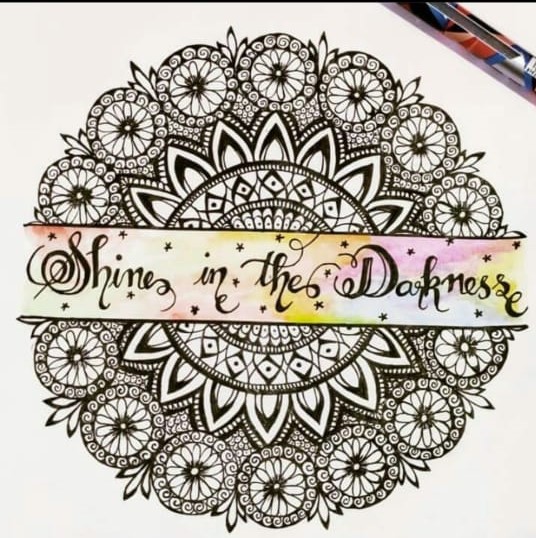 Shine in the Darkness